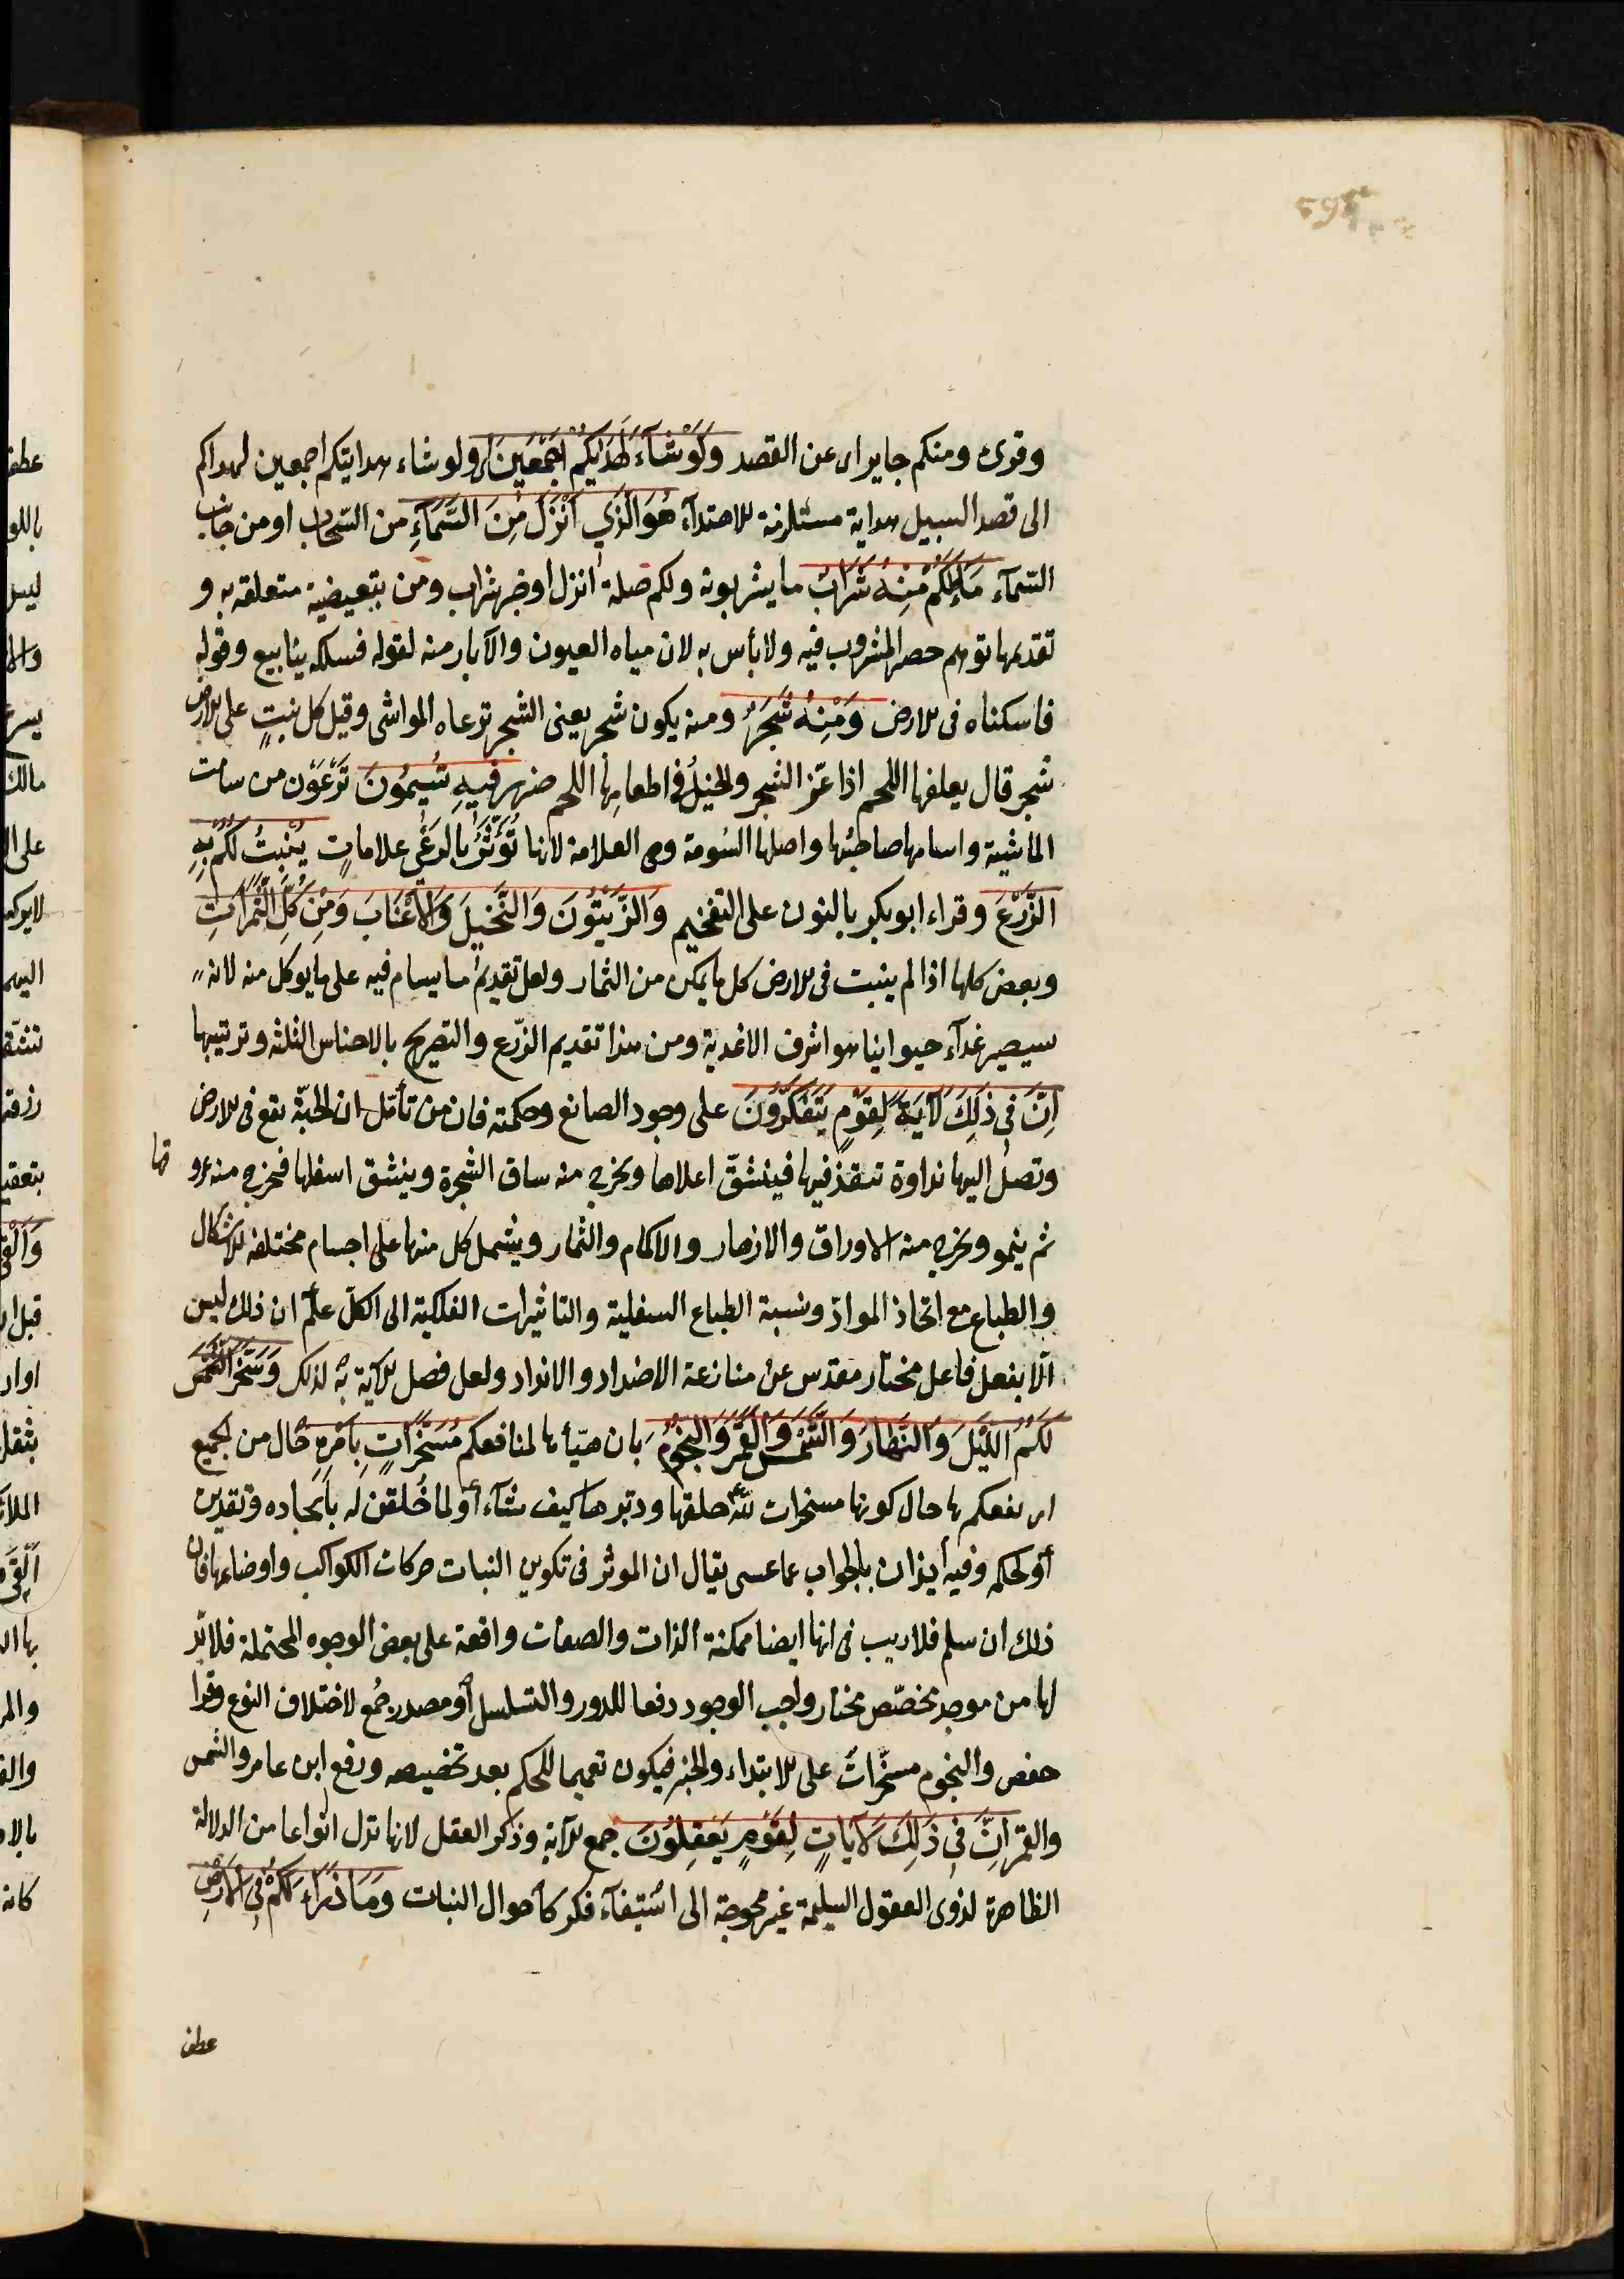 595
وقرئ ومنكم جاير اى عن القصد وَلَوْ شَآءَ لَهَدٰيكُمْ اَجْمَعِينَ اى ولو شاء هدايتكم اجمعين لهداكم
الى قصد السبيل هداية مستلزمة للاهتدآء هُوَ الَّذِي اَنْزَلَ مِنَ السَّمَآءِ من السّحاب او من جانب
السّمآء مَآءً لَكُمْ مِنْهُ شَرَابٌ ما يشربونه ولكم صلة انزل او خبر شراب ومن تبعيضية متعلقه به و
تقديمها توهم حصر المشروب فيه ولا بأس به لان مياه العيون والآبار منه لقوله فسلكه ينابيع وقوله
فاسكناه فى الارض وَمِنْهُ شَجَرٌ ومنه يكون شجر يعنى الشجر ترعاه المواشى وقيل كل نبتٍ على الارض
شجر قال يعلفها اللحم اذا عّز الشجر والخيلُ فى اطعامها اللحم ضرر فِيهِ تُسِيمُونَ تَرْعَوْن من سامت
الماشية واسامها صاحبُها واصلها السُومة وهى العلامة لانها تُؤَثِّرُ بالرعْى علاماتٍ يُنْبِتُ لَكُمْ بِهِ
الزَّرْعَ وقراء ابو بكر بالنون على التفخيم وَالزَّيْتُونَ وَالنَّخِيلَ وَالْاَعْنَابَ وَمِنْ كُلِّ الثَّمَرَاتِ
وبعض كلها اذا لم ينبت فى الارض كل ما يمكن من الثمار ولعل تقديم ما يسام فيه على ما يوكل منه لانه
سيصير غدآء حيوانيا هو اشرف الاغدية ومن هذا تقديم الزّرع والتصريح بالاجناس الثلثه وترتيبها
اِنَّ فِي ذٰلِكَ لَاٰيَةً لِقَوْمٍ يَتَفَكَّرُونَ على وجود الصانع وحكمته فان من تأمّل ان الحبّة تقع فى الارض
وتصل اليها نداوة تنفذ فيها فينشقّ اعلاها ويخرج منه ساق الشجرة وينشق اسفلها فيخرج منه عرو
قها
ثم ينمو ويخرج منه الاوراق والازهار والاكمام والثمار ويشمل كل منها على اجسام مختلفه الاشكال
والطباع مع اتحاد الموادّ ونسبة الطباع السفلية والتاثيرات الفلكية الى الكلّ علم ان ذلك ليس
الّا بفعل فاعل مختار مقدّس عن منازعة الاضداد والانداد ولعل فصل الآية به لذلك وَسَخَّرَ الشَّمْسَ
لَكُمُ اللَّيْلَ وَالنَّهَارَ وَالشَّمْسَ وَالْقَمَرَ وَالنُّجُومُ بان هيّأها لمنافعكم مُسَخَّرَاتٍ بِاَمْرِهِ حال من الجميع
اى نفعكم بها حال كونها مسخرات لله خلقها ودبرها كيف شآء أو لما خُلقن له بايجاده وتقديره
أو لحكمه وفيه أيذان بالجواب عما عسى يقال ان الموثر فى تكوين النبات حركات الكواكب واوضاعها فان
ذلك ان سلم فلا ريب فى انها ايضا ممكنة الذات والصفات واقعة على بعض الوجوه المحتملة فلا بدّ
لها من موجد مخصّص مختار واجب الوجود دفعا للدور والتسلسل أو مصدر جُمع لاختلاف النوع وقرا
حفص والنجوم مسخّراتٌ على الابتداء والخبر فيكون تعميما للحكم بعد تخصيصه ورفع ابن عامر والشمس
والقمر اِنَّ فِي ذٰلِكَ لَاٰيَاتٍ لِقَوْمٍ يَعْقِلُونَ جمع الآية وذكر العقل لانها تدل انواعا من الدلالة
الظاهرة لذوى العقول السليمة غير محوجة الى استيفآء فكر كأحوال النبات وَمَا ذَرَاَ لَكُمْ فِي الْاَرْضِ
عطف